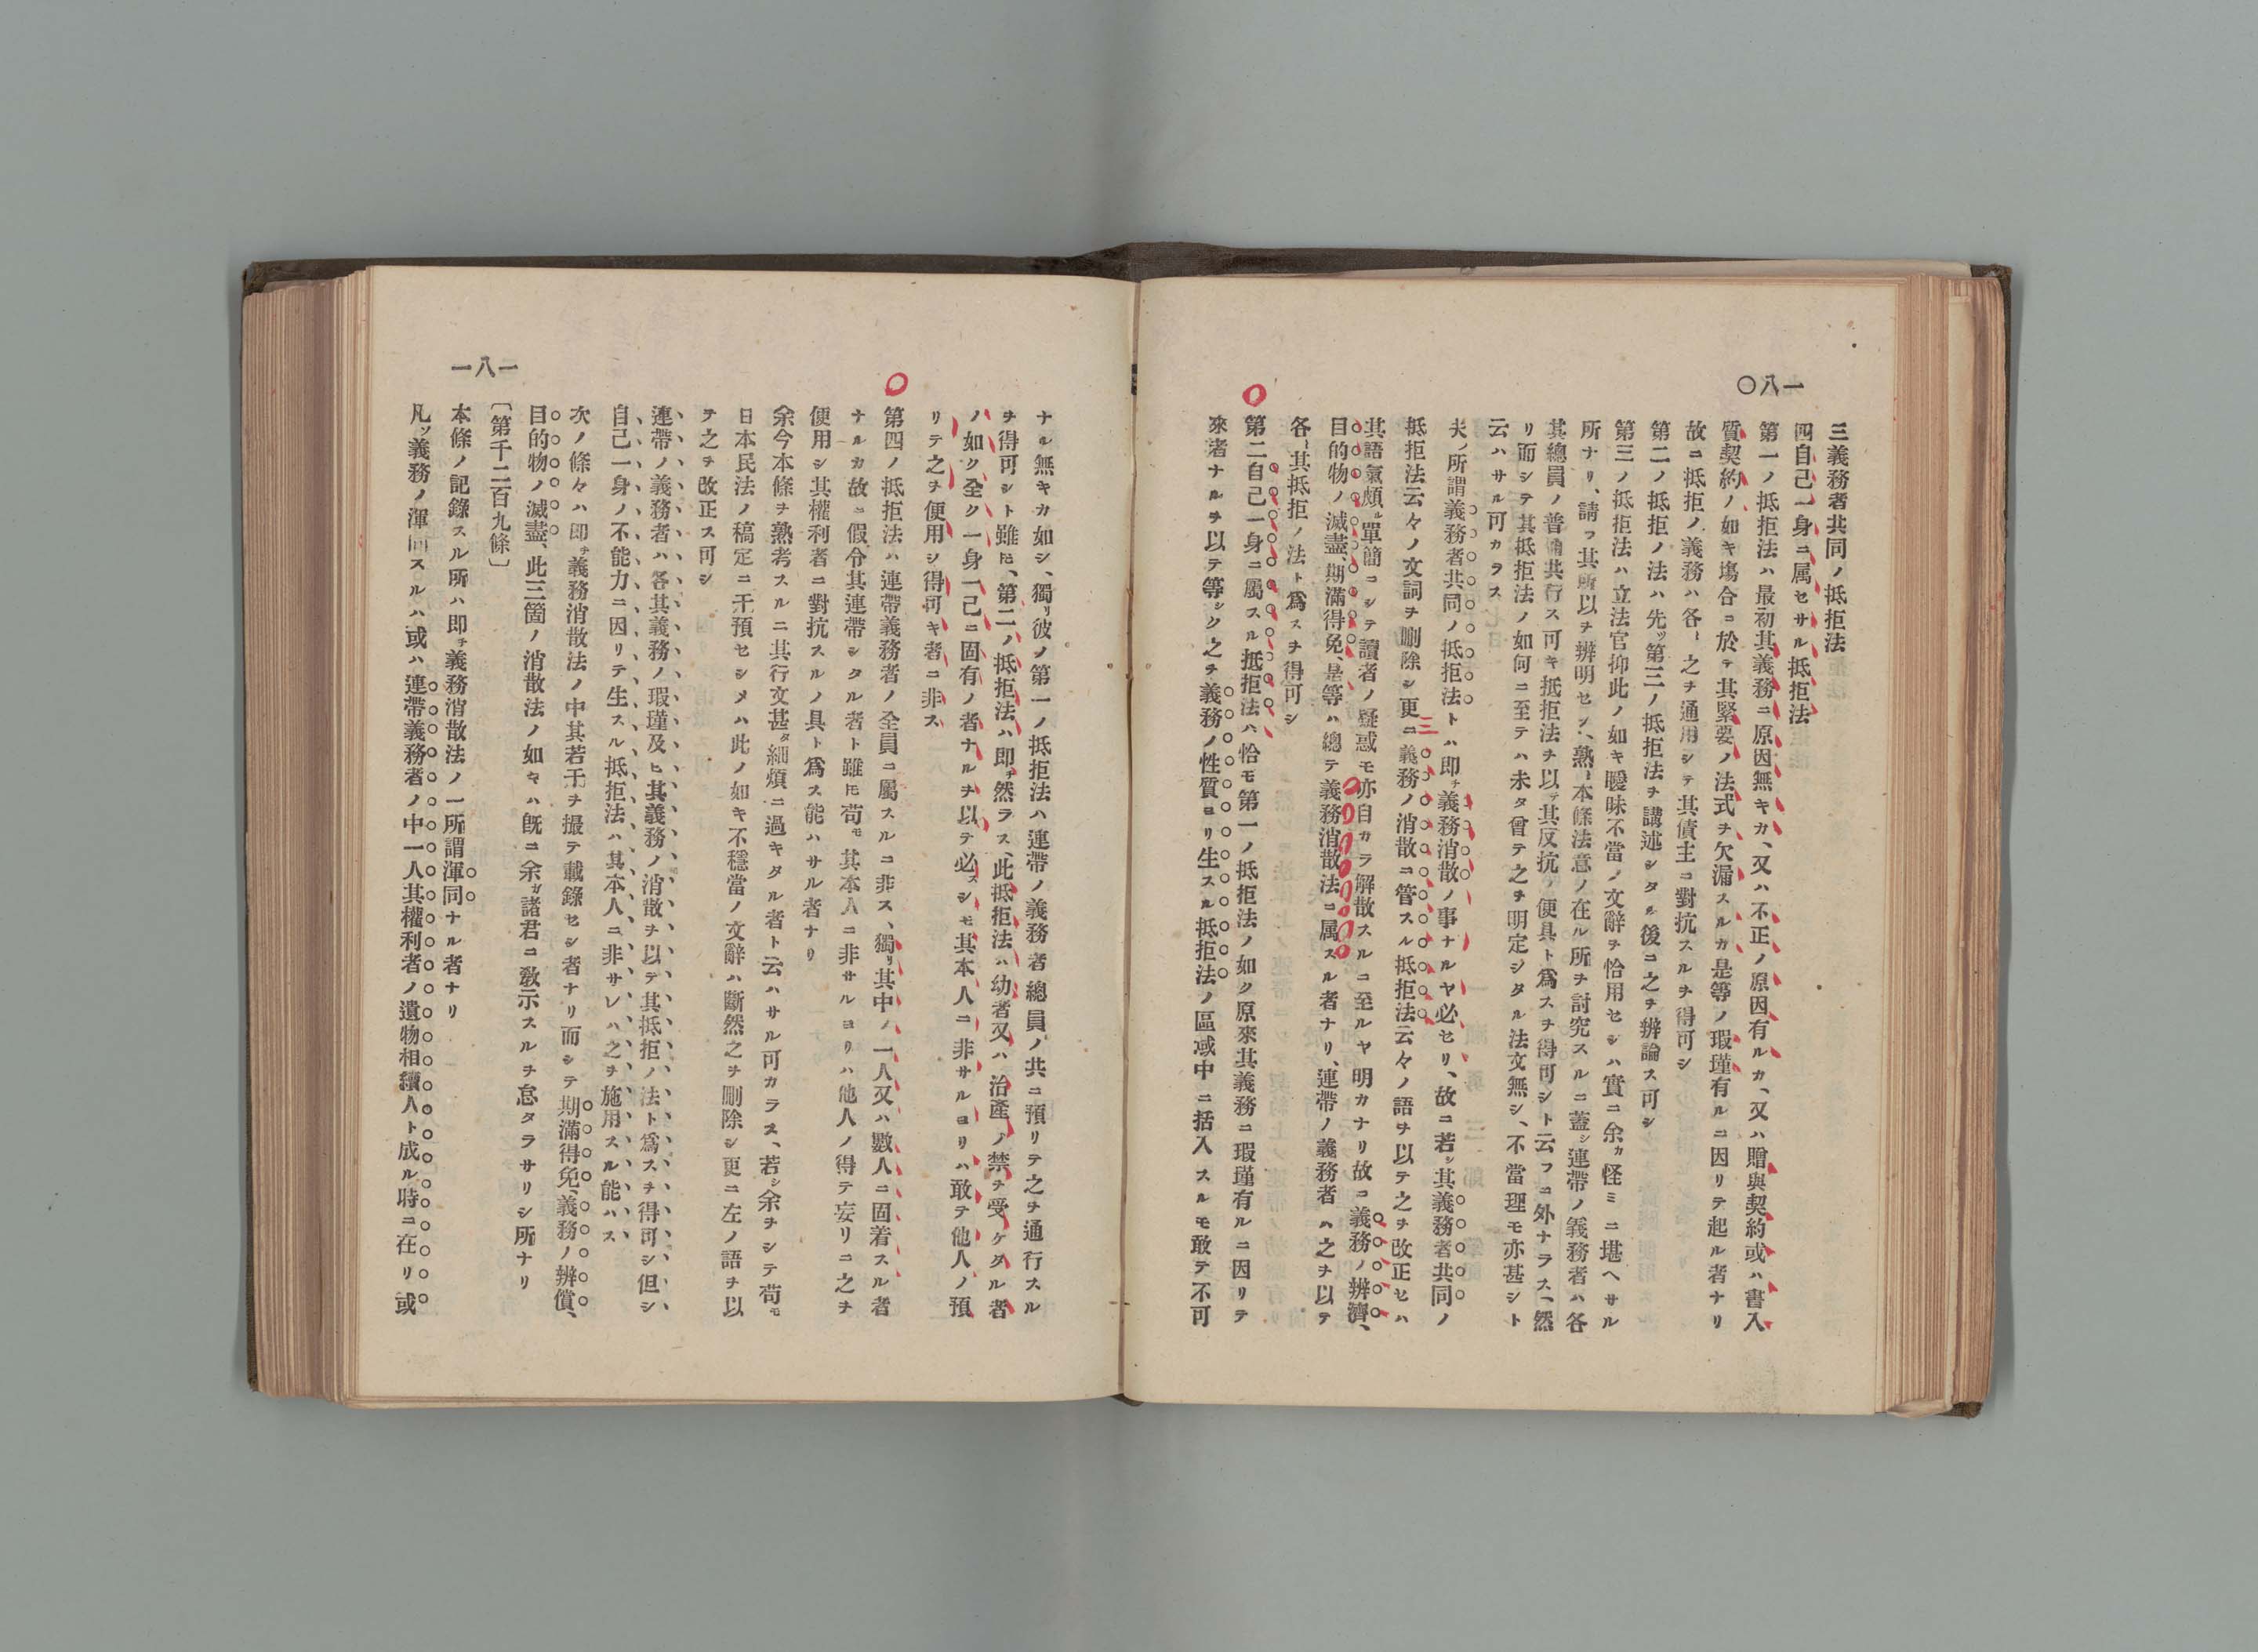 一八〇
三義務者共同ノ抵拒法
四自己一身ニ属セサル抵拒法
第一ノ抵拒法ハ最初其義務ニ原因無キカ、又ハ不正ノ原因有ルカ、又ハ贈與契約或ハ書入
質契約ノ如キ塲合ニ於テ其緊要ノ法式ヲ欠漏スルカ是等ノ瑕瑾有ルニ因リテ起ル者ナリ
故ニ抵拒ノ義務ハ各〻之ヲ通用シテ其債主ニ對抗スルヲ得可シ
第二ノ抵拒ノ法ハ先ッ第三ノ抵拒法ヲ講述シタル後ニ之ヲ辨論ス可シ
第三ノ抵拒法ハ立法官抑此ノ如キ曖昧不當ノ文辭ヲ恰用セシハ實ニ余カ怪ミニ堪ヘサル
所ナリ、請フ其所以ヲ辨明セン、熟〻本條法意ノ在ル所ヲ討究スルニ蓋シ連帶ノ義務者ハ各
其總員ノ普ク共行ス可キ抵拒法ヲ以テ其反抗ノ便具ト爲スヲ得可シト云フニ外ナラス、然
リ而シテ其抵拒法ノ如何ニ至テハ未タ曾テ之ヲ明定シタル法文無シ、不當理モ亦甚シト
云ハサル可カラス
夫ノ所謂義務者共同ノ抵拒法トハ即チ義務消散ノ事ナルヤ必セリ、故ニ若シ其義務者共同ノ
抵拒法云々ノ文詞ヲ刪除シ更ニ義務ノ消散ニ管スル抵拒法云々ノ語ヲ以テ之ヲ改正セハ
其語氣頗ル單簡ニシテ讀者ノ疑惑モ亦自カラ解散スルニ至ルヤ明カナリ故ニ義務ノ辨濟、
目的物ノ滅盡、期滿得免、是等ハ總テ義務消散法ニ属スル者ナリ、連帶ノ義務者ハ之ヲ以テ
各〻其抵拒ノ法ト爲スヲ得可シ
第二自己一身ニ屬スル抵拒法ハ恰モ第一ノ抵拒法ノ如ク原來其義務ニ瑕瑾有ルニ因リテ
來渚ナルヲ以テ等シク之ヲ義務ノ性質ヨリ生スル抵拒法ノ區域中ニ括入スルモ敢テ不可
一八一
ナル無キカ如シ、獨リ彼ノ第一ノ抵拒法ハ連帶ノ義務者總員ノ共ニ預リテ之ヲ通行スル
ヲ得可シト雖𪜈、第二ノ抵拒法ハ即チ然ラス、此抵拒法ハ幼者又ハ治產ノ禁ヲ受ケタル者
ノ如ク全ク一身一己ニ固有ノ者ナルヲ以テ必スシモ其本人ニ非サルヨリハ敢テ他人ノ預
リテ之ヲ便用シ得可キ者ニ非ス
第四ノ抵拒法ハ連帶義務者ノ全員ニ屬スルニ非ス、獨リ其中ノ一人又ハ數人ニ固着スル者
ナルカ故ニ假令其連帶シタル者ト雖𪜈苟モ其本人ニ非サルヨリハ他人ノ得テ妄リニ之ヲ
便用シ其權利者ニ對抗スルノ具ト爲ス能ハサル者ナリ
余今本條ヲ熟考スルニ其行文甚タ細煩ニ過キタル者ト云ハサル可カラス、若シ余ヲシテ苟モ
日本民法ノ稿定ニ干預セシメハ此ノ如キ不穩當ノ文辭ハ斷然之ヲ刪除シ更ニ左ノ語ヲ以
テ之ヲ改正ス可シ
連帶ノ義務者ハ各其義務ノ瑕瑾及ヒ其義務ノ消散ヲ以テ其抵拒ノ法ト爲スヲ得可シ但シ
自己一身ノ不能力ニ因リテ生スル抵拒法ハ其本人ニ非サレハ之ヲ施用スル能ハス
次ノ條々ハ即チ義務消散法ノ中其若干ヲ撮テ載錄セシ者ナリ而シテ期滿得免、義務ノ辨償、
目的物ノ滅盡、此三箇ノ消散法ノ如キハ既ニ余カ諸君ニ敎示スルヲ怠タラサリシ所ナリ
〔第千二百九條〕
本條ノ記錄スル所ハ即チ義務消散法ノ一所謂渾同ナル者ナリ
凡ッ義務ノ渾同スルハ或ハ連帶義務者ノ中一人其權利者ノ遺物相續人ト成ル時ニ在リ或